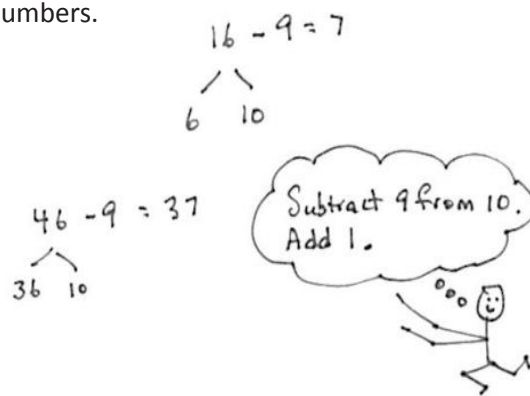 umbers.
16 - 9 = 7
6 10
46 - 9 = 37
36 10
Subtract 9 from 10.
Add 1.